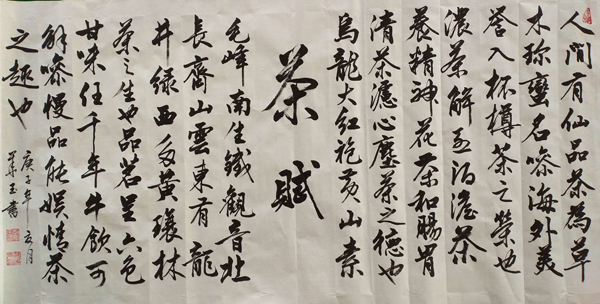 人間有仙品茶為草
木珍蠻名噪海外美
誉入杯樽茶之榮也
濃茶解烈酒淡茶
養精神花茶和腸胃
清茶濾心塵茶之德也
烏龍大紅袍黄山素
茶賦
毛峰南生鐵觀音北
長齋山雲東有龍
井緑西多黄瓖林
茶之生也品茗呈六色
甘味任千年牛飲可
解噪慢品能娱情茶
之趣也
庚子年月
華玉書